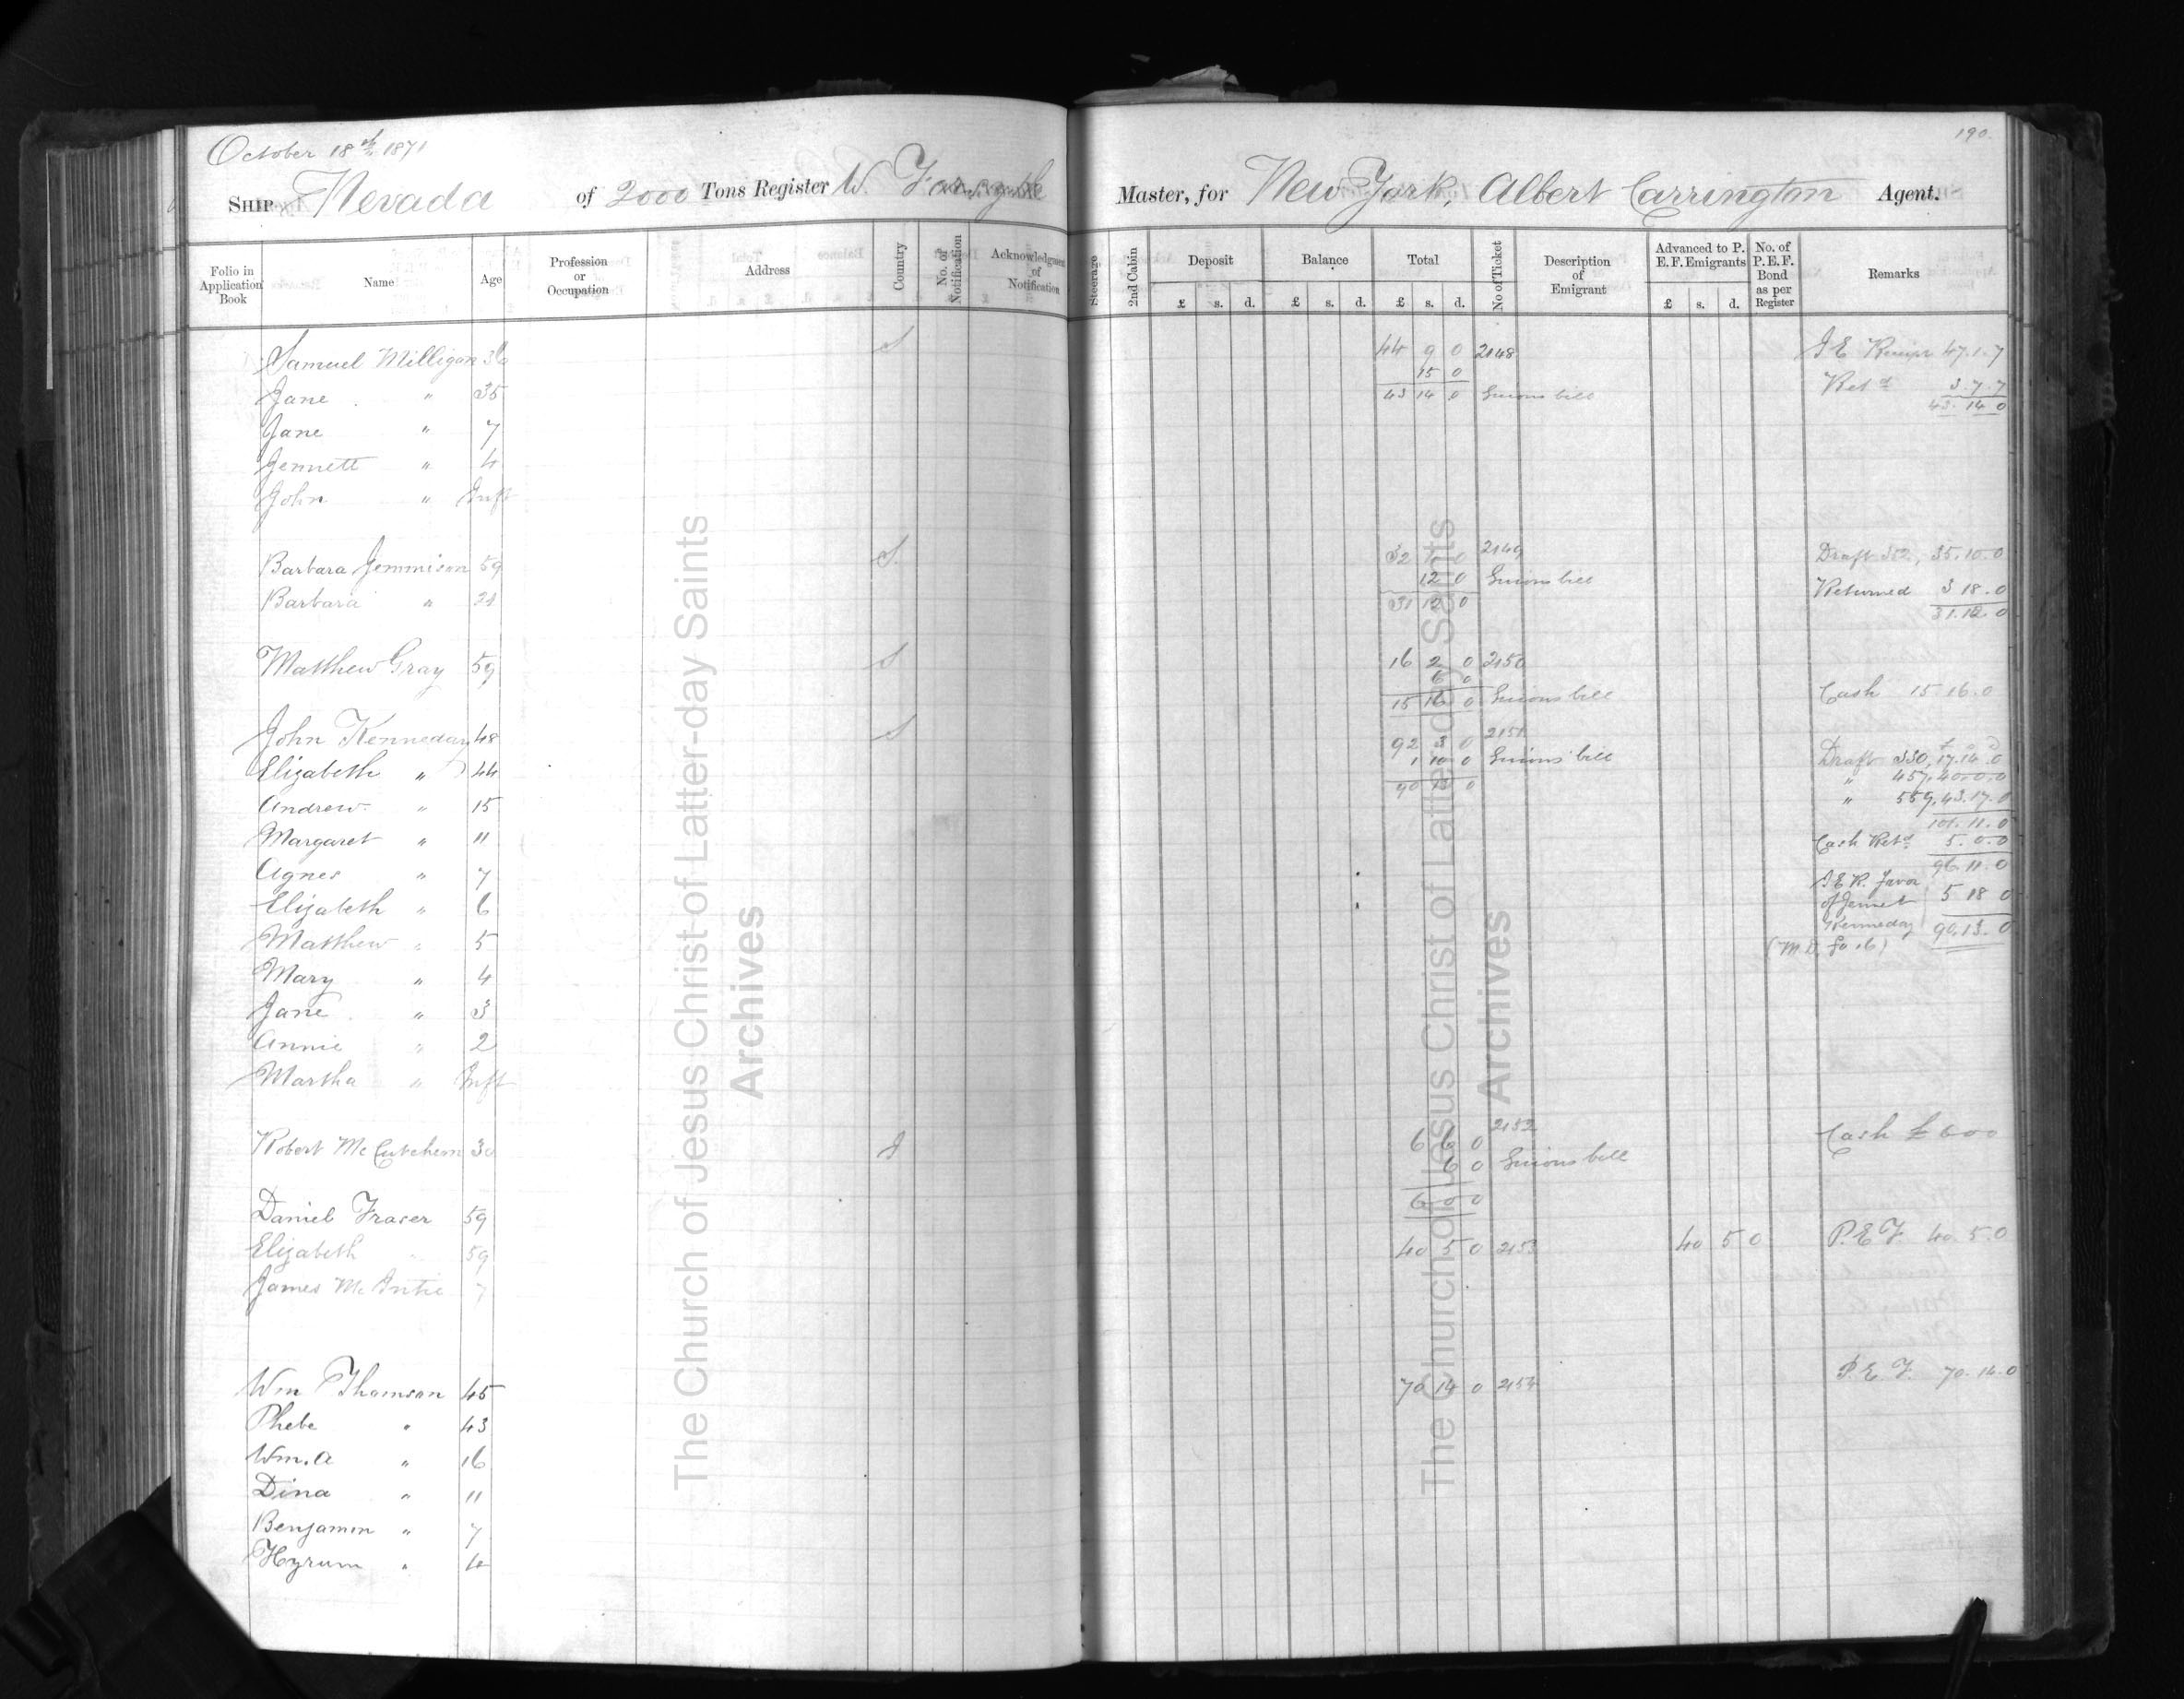 190.
October 18th 1871
SHIP Nevada of 2000 Tons Register W. Forsyth Master, for New York, Albert Carrington Agent.
Folio in Application Book Name Age Profession or Occupation Address Country No. of Notification Acknowledgment of Notification Steerage 2nd Cabin Deposit Balance Total No of Ticket Description of Emigrant Advanced to P. E. F. Emigrants No. of P. E. F. Bond as per Register Remarks
£ s. d. £ s. d. £ s. d. £ s. d.
Samuel Milligan 36 S 44 9 0 2148 I E Receipt 47.1.7
15 0
Jane " 35 43 14 0 Guions bill Retd 3.7.7
43.14 0
Jane " 7
Jennett " 4
John " Inft
Barbara Jemmison 59 S. 32 4 0 2149 Draft 352, 35.10.0
12 0 Guions bill
Barbara " 21 31 12 0 Returned 3 18.0
31.12.0
Matthew Gray 59 S 16 2 0 2150
6 0
15 16 0 Guions bill Cash 15 16.0
John Kenneday 48 S 92 3 0 2151
Elizabeth " 44 1 10 0 Guions bill Draft 330, 17.14.0
90 13 0 " 457, 40.0.0
Andrew " 15 " 559, 43.17.0
101.11.0
Margaret " 11 Cash Retd 5.0.0
96.11.0
Agnes " 7 I E R. favor
Elizabeth " 6 of Jannet 5 18 0
Kenneday 90.13.0
Matthew " 5 (M.D. fo 16)
Mary " 4
Jane " 3
Annie " 2
Martha " Inft
Robert McCutcheon 30 I 6 6 0 2152 Cash £ 6 0 0
6 0 Guions bill
6 0 0
Daniel Fraser 59
Elizabeth " 59 40 5 0 2153 40 5 0 P.E.F. 40 5.0
James McIntie 7
Wm Thomson 45 70 14 0 2154 P.E.F. 70.14.0
Phebe " 43
Wm. A " 16
Dina " 11
Benjamin " 7
Hyrum " 4
The Church of Jesus Christ of Latter-day Saints
Archives
The Church of Jesus Christ of Latter-day Saints
Archives